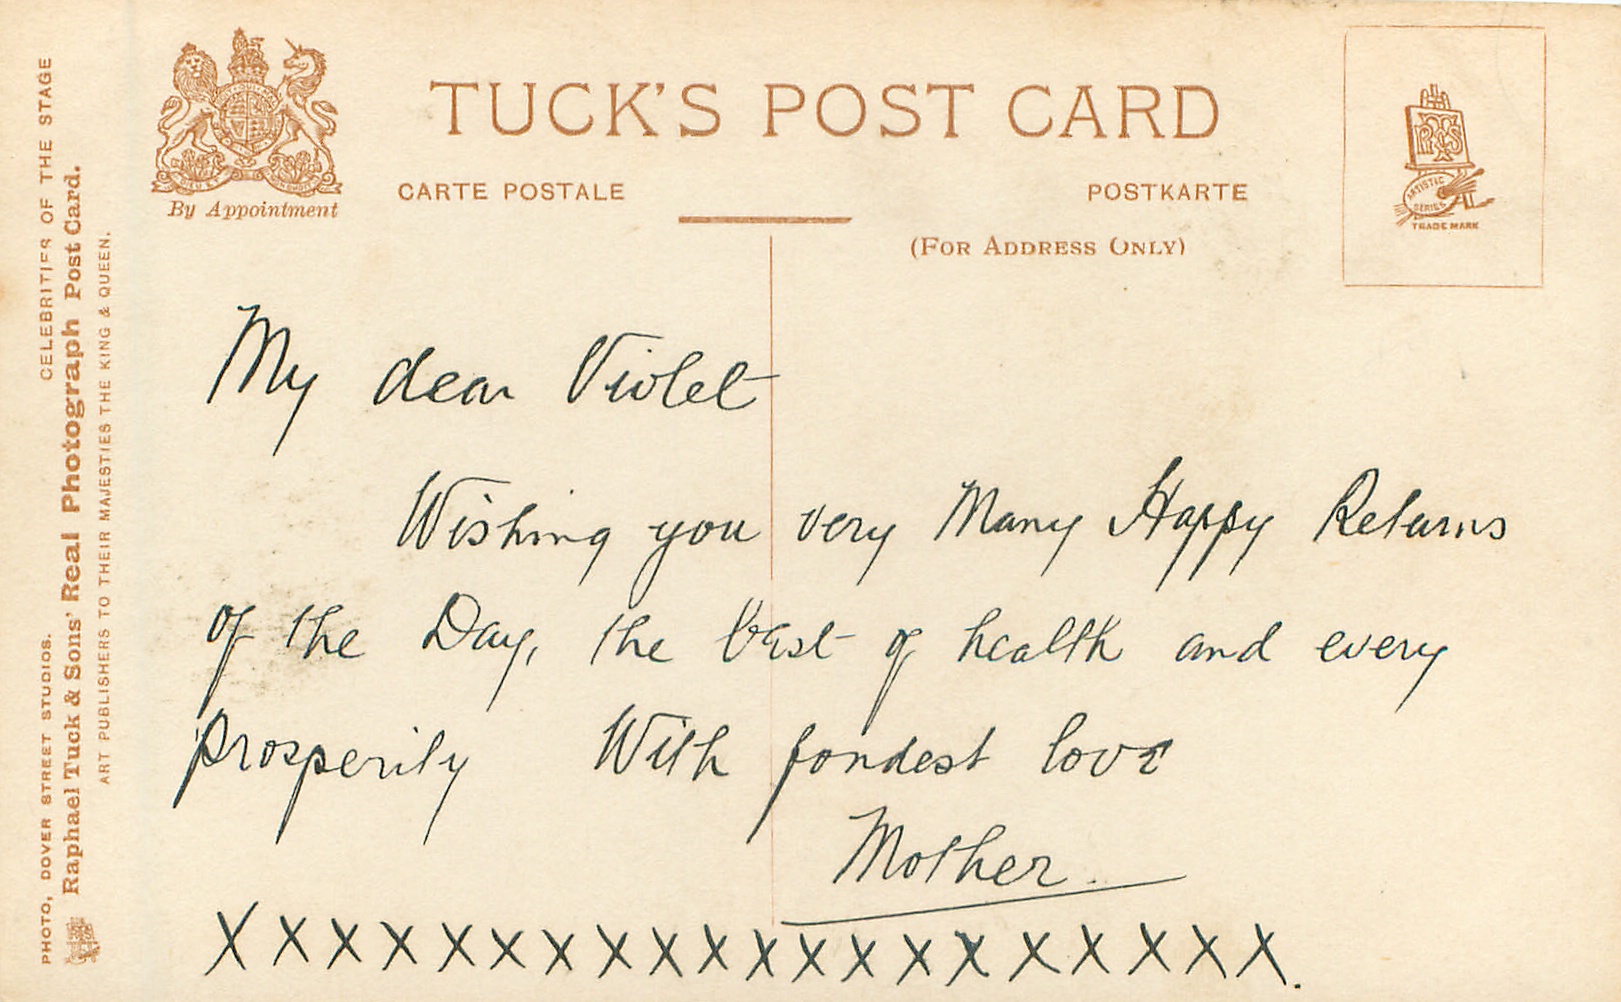 CELEBRITIES OF THE STAGE
PHOTO, DOVER STREET STUDIOS.
Raphael Tuck & Sons' Real Photograph Post Card.
ART PUBLISHERS TO THEIR MAJESTIES THE KING & QUEEN.
By Appointment
TUCK'S POST CARD
CARTE POSTALE
POSTKARTE
(FOR ADDRESS ONLY)
ARTISTIC
SERIES
TRADE MARK
My dear Violet
Wishing you very Many Happy Returns
of the Day, the best of health and every
prosperity With fondest love
Mother
X X X X X X X X X X X X X X X X X X X X.